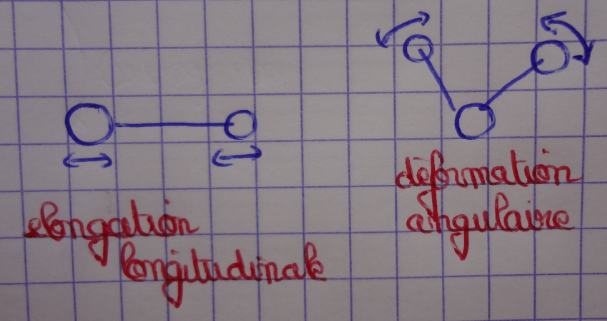 elongation
longitudinale
déformation
angulaire